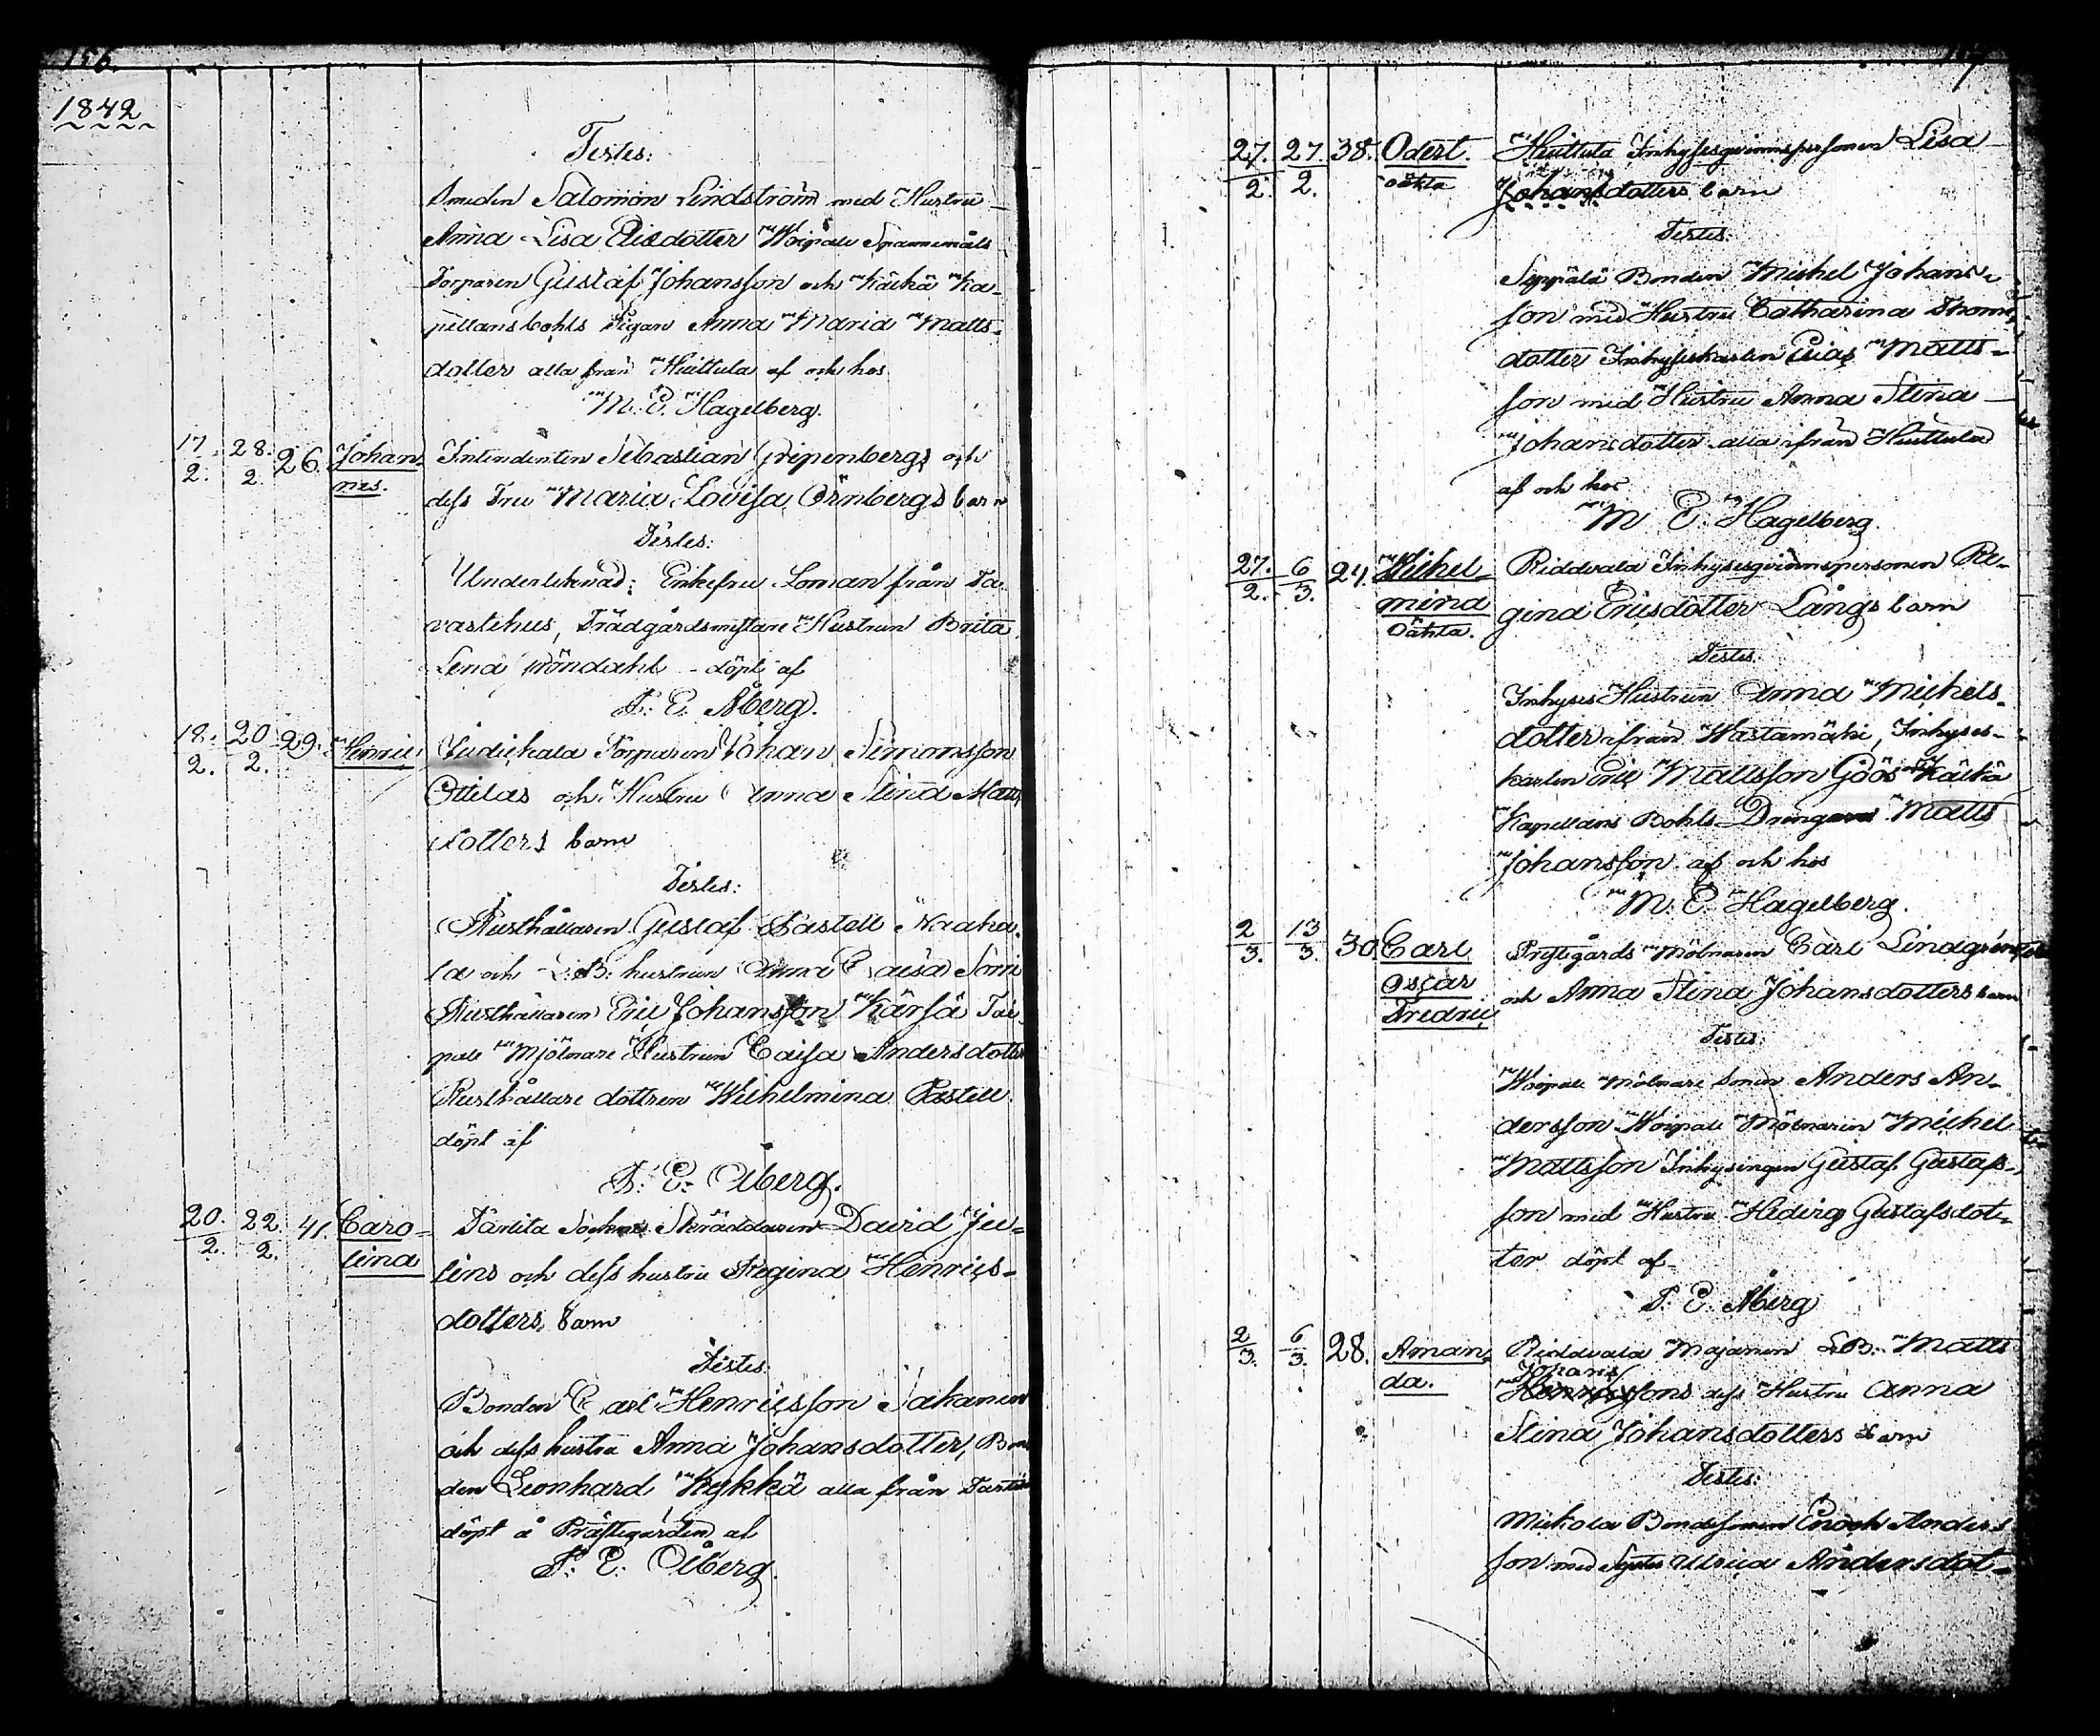 156.
1842
Testes:
Smeden Salomon Lindström med Hustru
Anna Lisa Ericsdotter Woipala Spannmåls
Torparen Gustaf Johansson och Käikä Ka-
pellansbohls Pigan Anna Maria Matts-
dotter alla från Huittula af och hos
M. E. Hagelberg.
17/2. 28./2. 26. Johan-
nes.
Intendenten Sebastian Gripenbergs och
dess Fru Maria Lovisa Örnbergs barn
Testes:
Undertecknad: Enkefru Loman från Ta-
vastehus, Trädgårdsmästare Hustrun Brita
Lena Gröndahl - döpt af
F. E. Åberg.
18./2. 20/2. 29. Henric
Judickala Torparen Johan Simonsson
Ottilas och Hustru Anna Stina Matts
dotters barn
Testes:
Rusthållaren Gustaf Pastell Naaha-
la och L.B. hustrun Anna Caisa
Rusthållaren Eric Johansson Kärsä Toi-
pale Mjölnare Hustrun Caisa Andersdotter
Rusthållare dottren Wilhelmina Pastell
döpt af
F. E. Åberg.
20./2. 22./2. 41. Caro-
lina
Tärlita Sockne Skräddaren David Ju-
lins och dess hustru Regina Henrics-
dotters barn
Testes:
Bonden Carl Henricsson Sakanen
och dess hustru Anna Johansdotter, Bon
den Leonhard Kykkä alla från
döpt å Prästegården af
F. E. Åberg.
157
27./2. 27/2. 38. Odert.
oäkta
Huittula Inhysesqvinnspersonen Lisa
Johansdotters barn
Testes:
Seppälä Bonden Michel Johans-
son med Hustru Catharina Thoms
dotter Inhyseskarlen Elias Matts-
son med Hustru Anna Stina
Johansdotter alla ifrån Huittula
af och hos
M E. Hagelberg.
27./2. 6/3. 24. Wilhel-
mina
Oäkta.
Riddvala Inhysesqvinnspersonen Re-
gina Ericsdotter Långs barn
Testes.
Inhyses Hustrun Anna Michels-
dotter ifrån Wastamäki, Inhyses-
karlen Eric Mattsson Göös och Käikä
Kapellans Bohls Drängen Matts
Johansson af och hos
M. E. Hagelberg.
2/3. 13/3. 30. Carl
Oscar
Fredric
Prästgårds Mölnaren Carl Lindgréns
och Anna Stina Johansdotters barn
Testes:
Woipale Mölnare Sonen Anders An-
dersson Woipale Mölnaren Michel
Mattsson Inhysingen Gustaf Gustafs-
son med Hustru Hedvig Gustafsdot-
ter döpt af
F. E. Åberg
2/3. 6/3. 28. Aman-
da.
Riddvala Majanen LB. Matts
Johans
Henricssons dess Hustru Anna
Stina Johansdotters barn
Testes:
Mickola Bondesonen Enoch Anders
son med Syster Ulrica Andersdot-